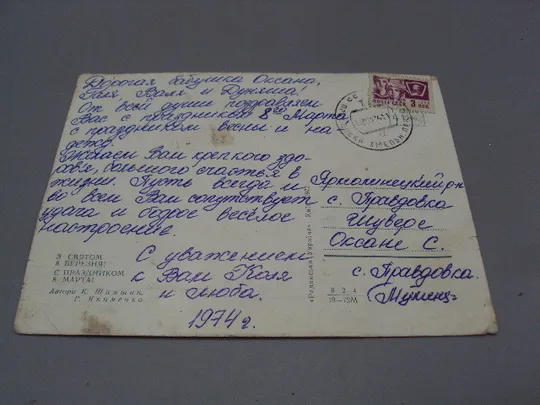 Дорогая бабушка Оксана,
Галя Валя и Дуняша!
От всей души поздравляем
Вас с праздником 8го Марта
с праздником весны и на-
дежд.
Желаем Вам крепкого здо-
ровья, большого счастья в
жизни. Пусть всегда и
во всем Вам сопутствует
удача и бодрое веселое
настроение.
С уважением
к Вам Коля
и Люба.
1974 г.
З СВЯТОМ
8 БЕРЕЗНЯ!
С ПРАЗДНИКОМ
8 МАРТА!
Автори К. Шишин,
Г. Якименко
ПОЧТА СССР
3 КОП
Ярмолинецкий р-н
с. Правдовка
Шуверс
Оксане С.
с. Правдовка
В 2-4